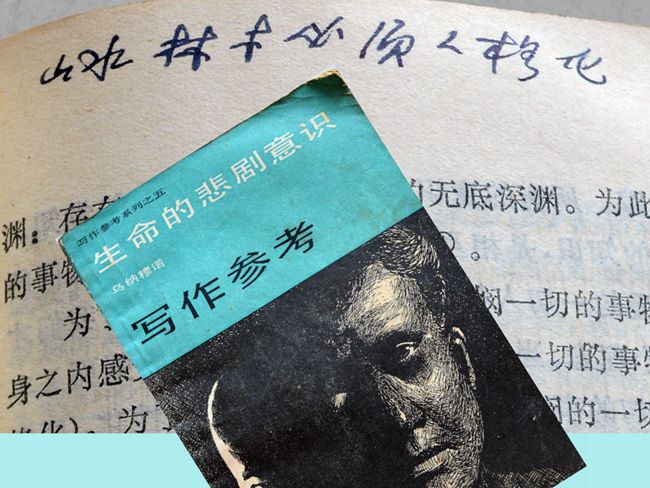 山水林木必须人格化
写作参考系列之五
生命的悲剧意识
乌纳穆诺
写作参考
渊：存 无底深渊。为此
的事物 。
为、 悯一切的事物
身之内感 一切的事物
化）。为 的一切